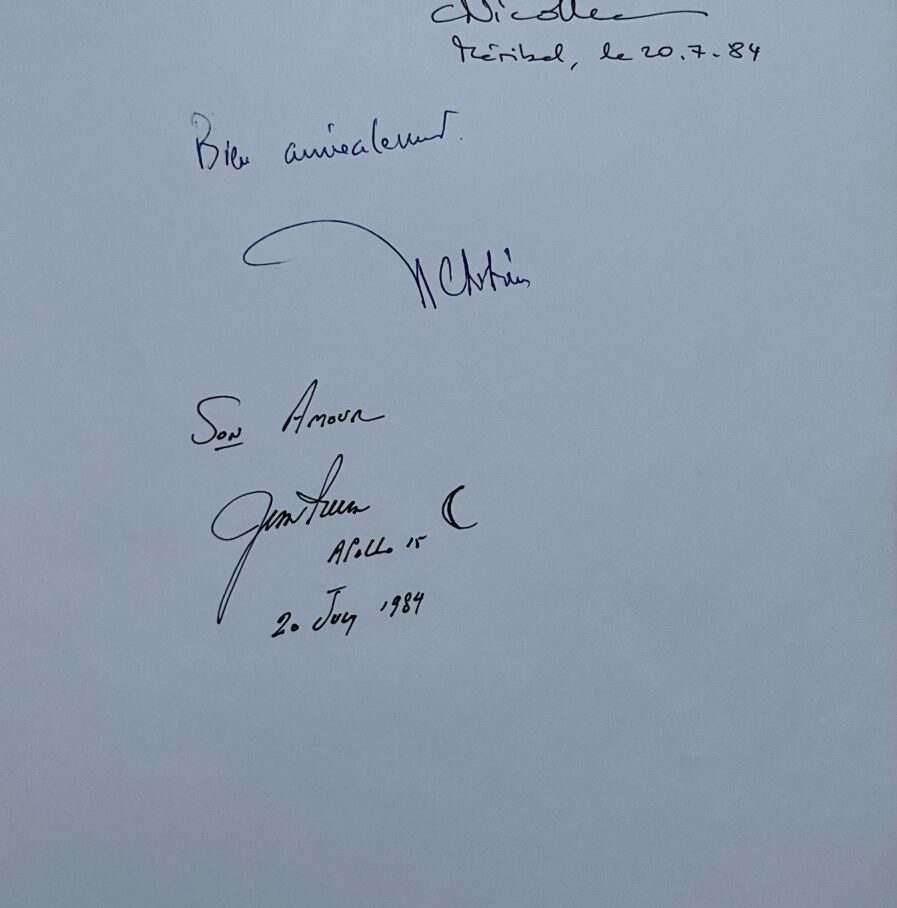 CNicollier
Méribel, le 20.7.84
Bien amicalement.
Son Amour
Jim Irwin
Apollo 15
20 July 1984